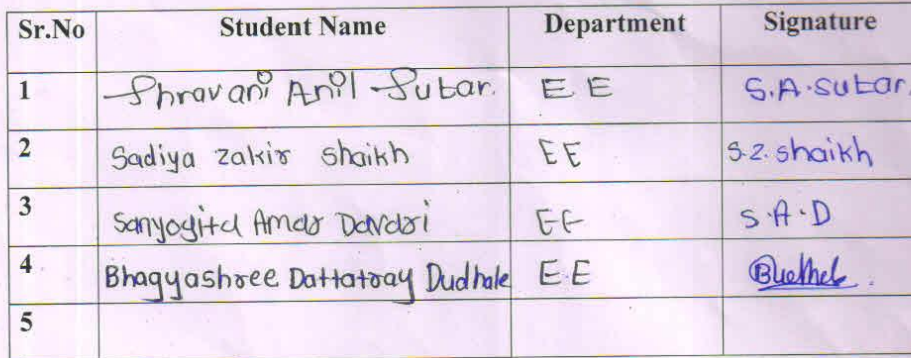 Sr.No Student Name Department Signature
1 Shravani Anil Sutar. E E S.A.Sutar.
2 Sadiya zakir shaikh EE S.Z. shaikh
3 Sanyogita Amar Davari EE S.A.D
4 Bhagyashree Dattatray Dudhale E.E
5